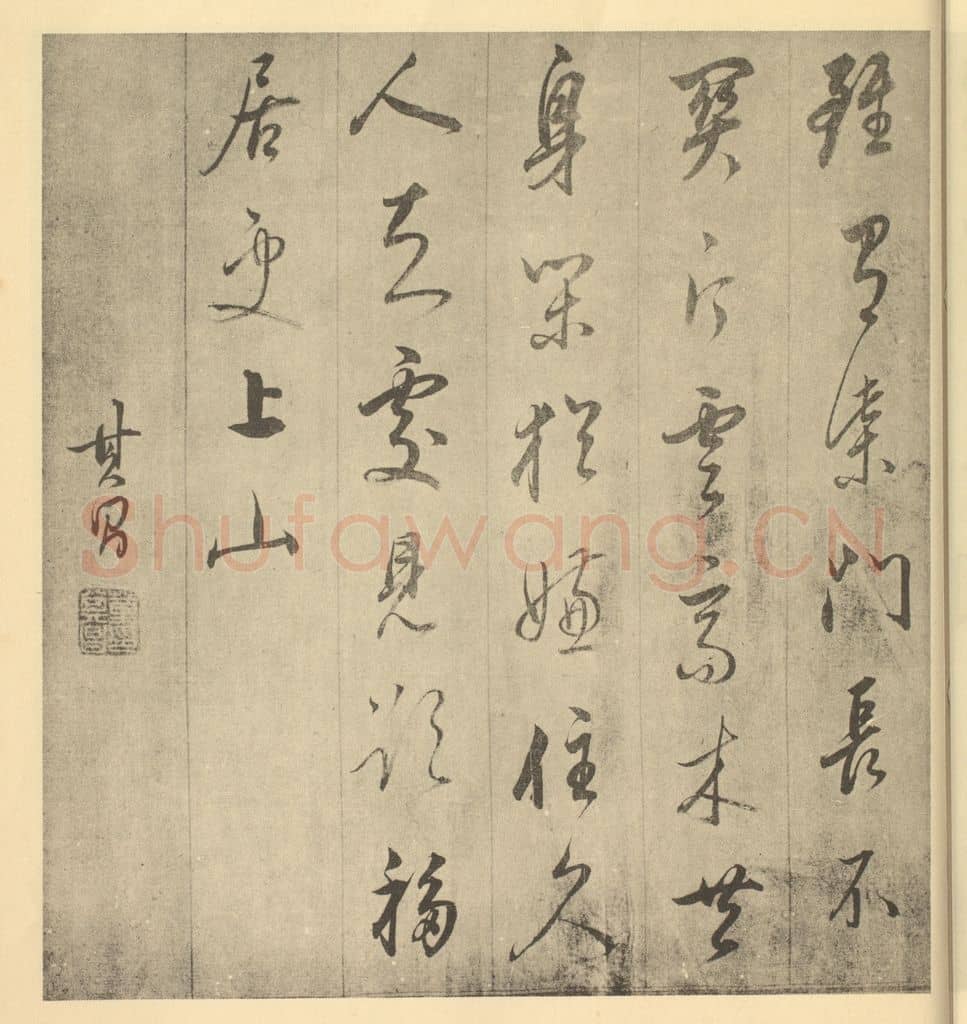 雖有柴門長不
關片雲高木共
身閑猶嫌住久
人知處見欲移
居更上山
其昌
Shufawang.CN